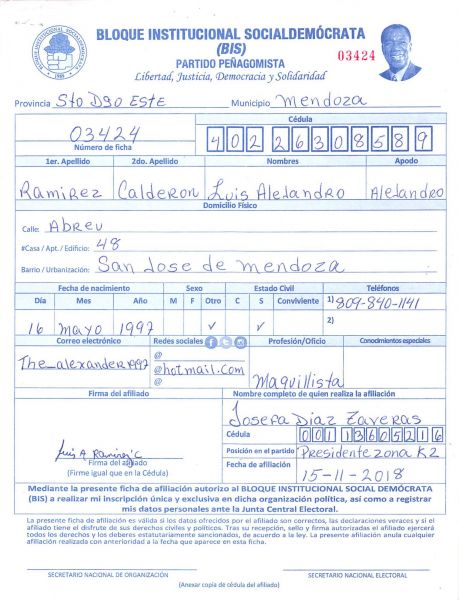 BLOQUE INSTITUCIONAL SOCIALDEMÓCRATA
(BIS)
PARTIDO PEÑAGOMISTA
Libertad, Justicia, Democracia y Solidaridad
03424
Provincia Sto Dgo ESTE Municipio Mendoza
03424
Número de ficha
Cédula
402 2630858 9
1er. Apellido 2do. Apellido Nombres Apodo
Ramirez Calderon Luis Alejandro Alejandro
Domicilio Físico
Calle: Abreu
#Casa / Apt. / Edificio: 48
Barrio / Urbanización: San Jose de mendoza
Fecha de nacimiento Sexo Estado Civil Teléfonos
Día Mes Año M F Otro C S Conviviente 1) 809-840-1141
16 mayo 1997 ✓ ✓ 2)
Correo electrónico Redes sociales Profesión/Oficio Conocimientos especiales
The_alexander1997 @
@hotmail.com
@
Maquillista
Firma del afiliado Nombre completo de quien realiza la afiliación
Josefa Diaz Taveras
Cédula
001 1360521 6
Luis A. Ramirez C
Firma del afiliado
(Firme igual que en la Cédula)
Posición en el partido Presidente zona K2
Fecha de afiliación 15-11-2018
Mediante la presente ficha de afiliación autorizo al BLOQUE INSTITUCIONAL SOCIAL DEMÓCRATA
(BIS) a realizar mi inscripción única y exclusiva en dicha organización política, así como a registrar
mis datos personales ante la Junta Central Electoral.
La presente ficha de afiliación es válida si los datos ofrecidos por el afiliado son correctos, las declaraciones veraces y si el
afiliado tiene el disfrute de sus derechos civiles y políticos. Tras su recepción, sello y firma autorizada el afiliado ejercerá
todos los derechos y los deberes estatutariamente sancionados, de acuerdo a la ley. La presente afiliación anula cualquier
afiliación realizada con anterioridad a la fecha que aparece en esta ficha.
SECRETARIO NACIONAL DE ORGANIZACIÓN SECRETARIO NACIONAL ELECTORAL
(Anexar copia de cédula del afiliado)